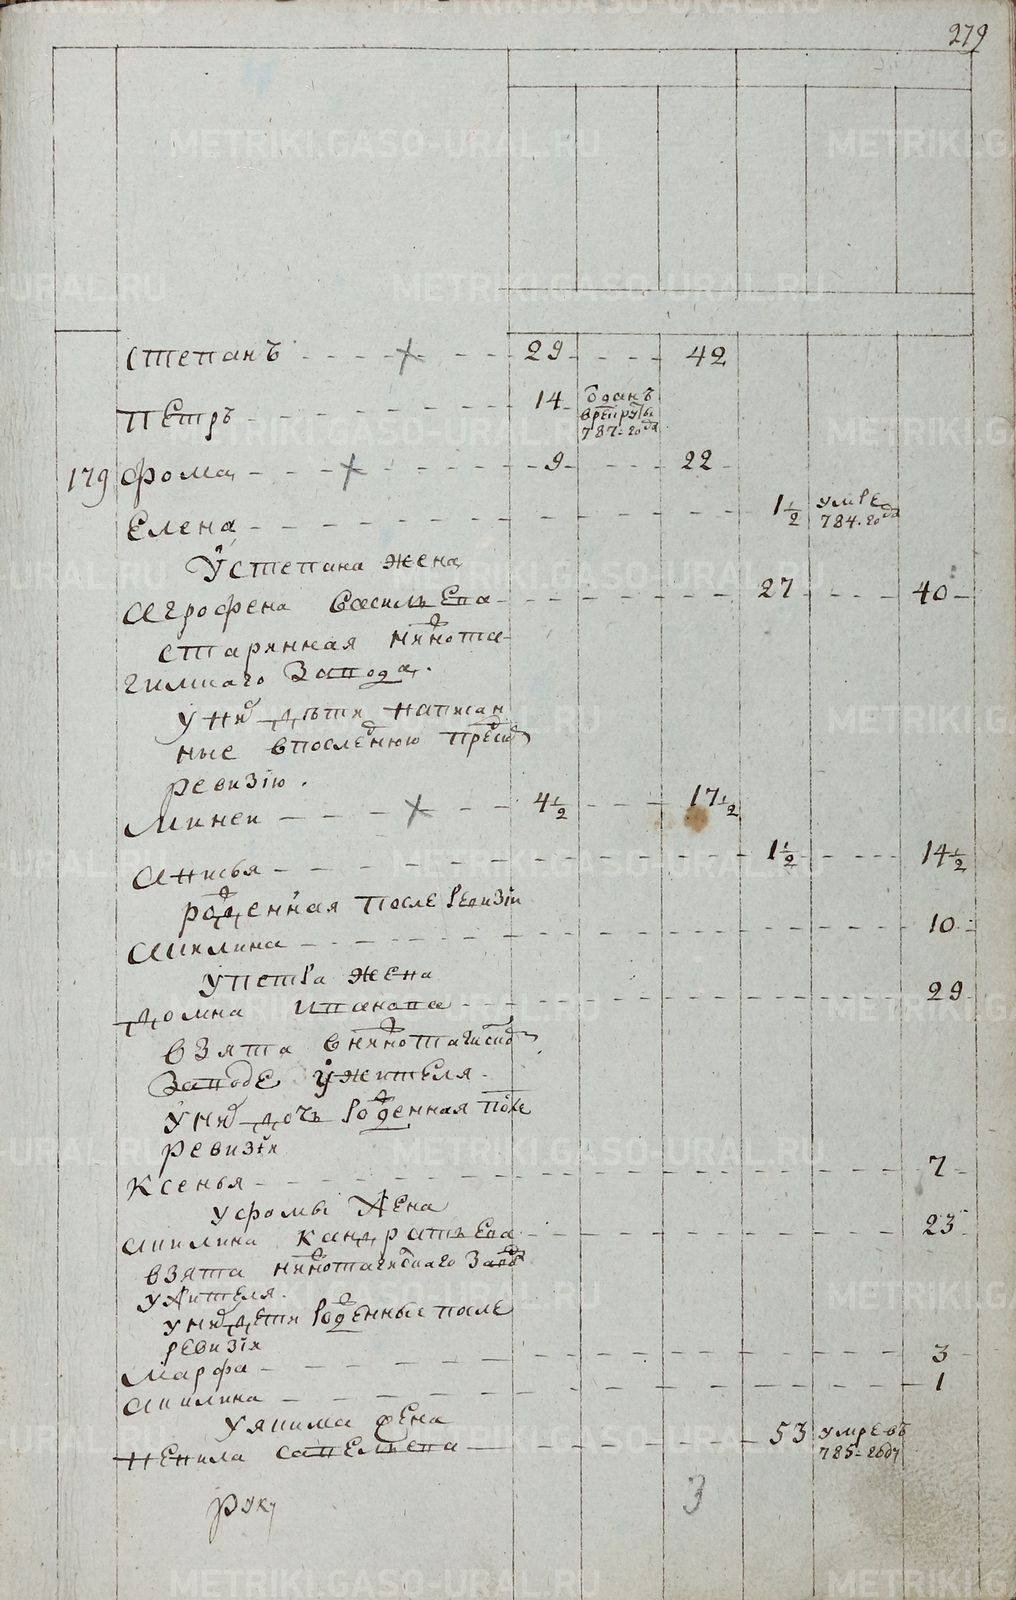 279
Степанъ - - - + - - - 29 - - - 42
Петръ - - - - 14 отданъ
в рекруты
787-года
179 Фома - - - + - - - 9 - - - 22
Елена - - - - 1½ умре
784-года
У Степана жена
Агрофена Васильева - - - 27 - - - 40
старинная нижнота-
гилскаго завода.
у них дети написан
ные в последнюю пред
ревизию.
Миней - - - + - - - 4½ - - - 17½
Анисья - - - - 1½ - - - 14½
рожденная после ревизіи
Акилина - - - - 10
у Петра жена
Домна Иванова - - - 29
взята в нижнотагилском
заводе у жителя.
у них дочь рожденная после
ревизіи
Ксенья - - - - 7
у Фомы жена
Акилина Кандратьева - - - 23
взята нижнотагилскаго завода
у жителя.
у них дети рожденные после
ревизіи
Марфа - - - - 3
Акилина - - - - 1
У Якима жена
Ненила Савельева - - - 53 умре въ
785-году
руку
3
METRIKI.GASO-URAL.RU